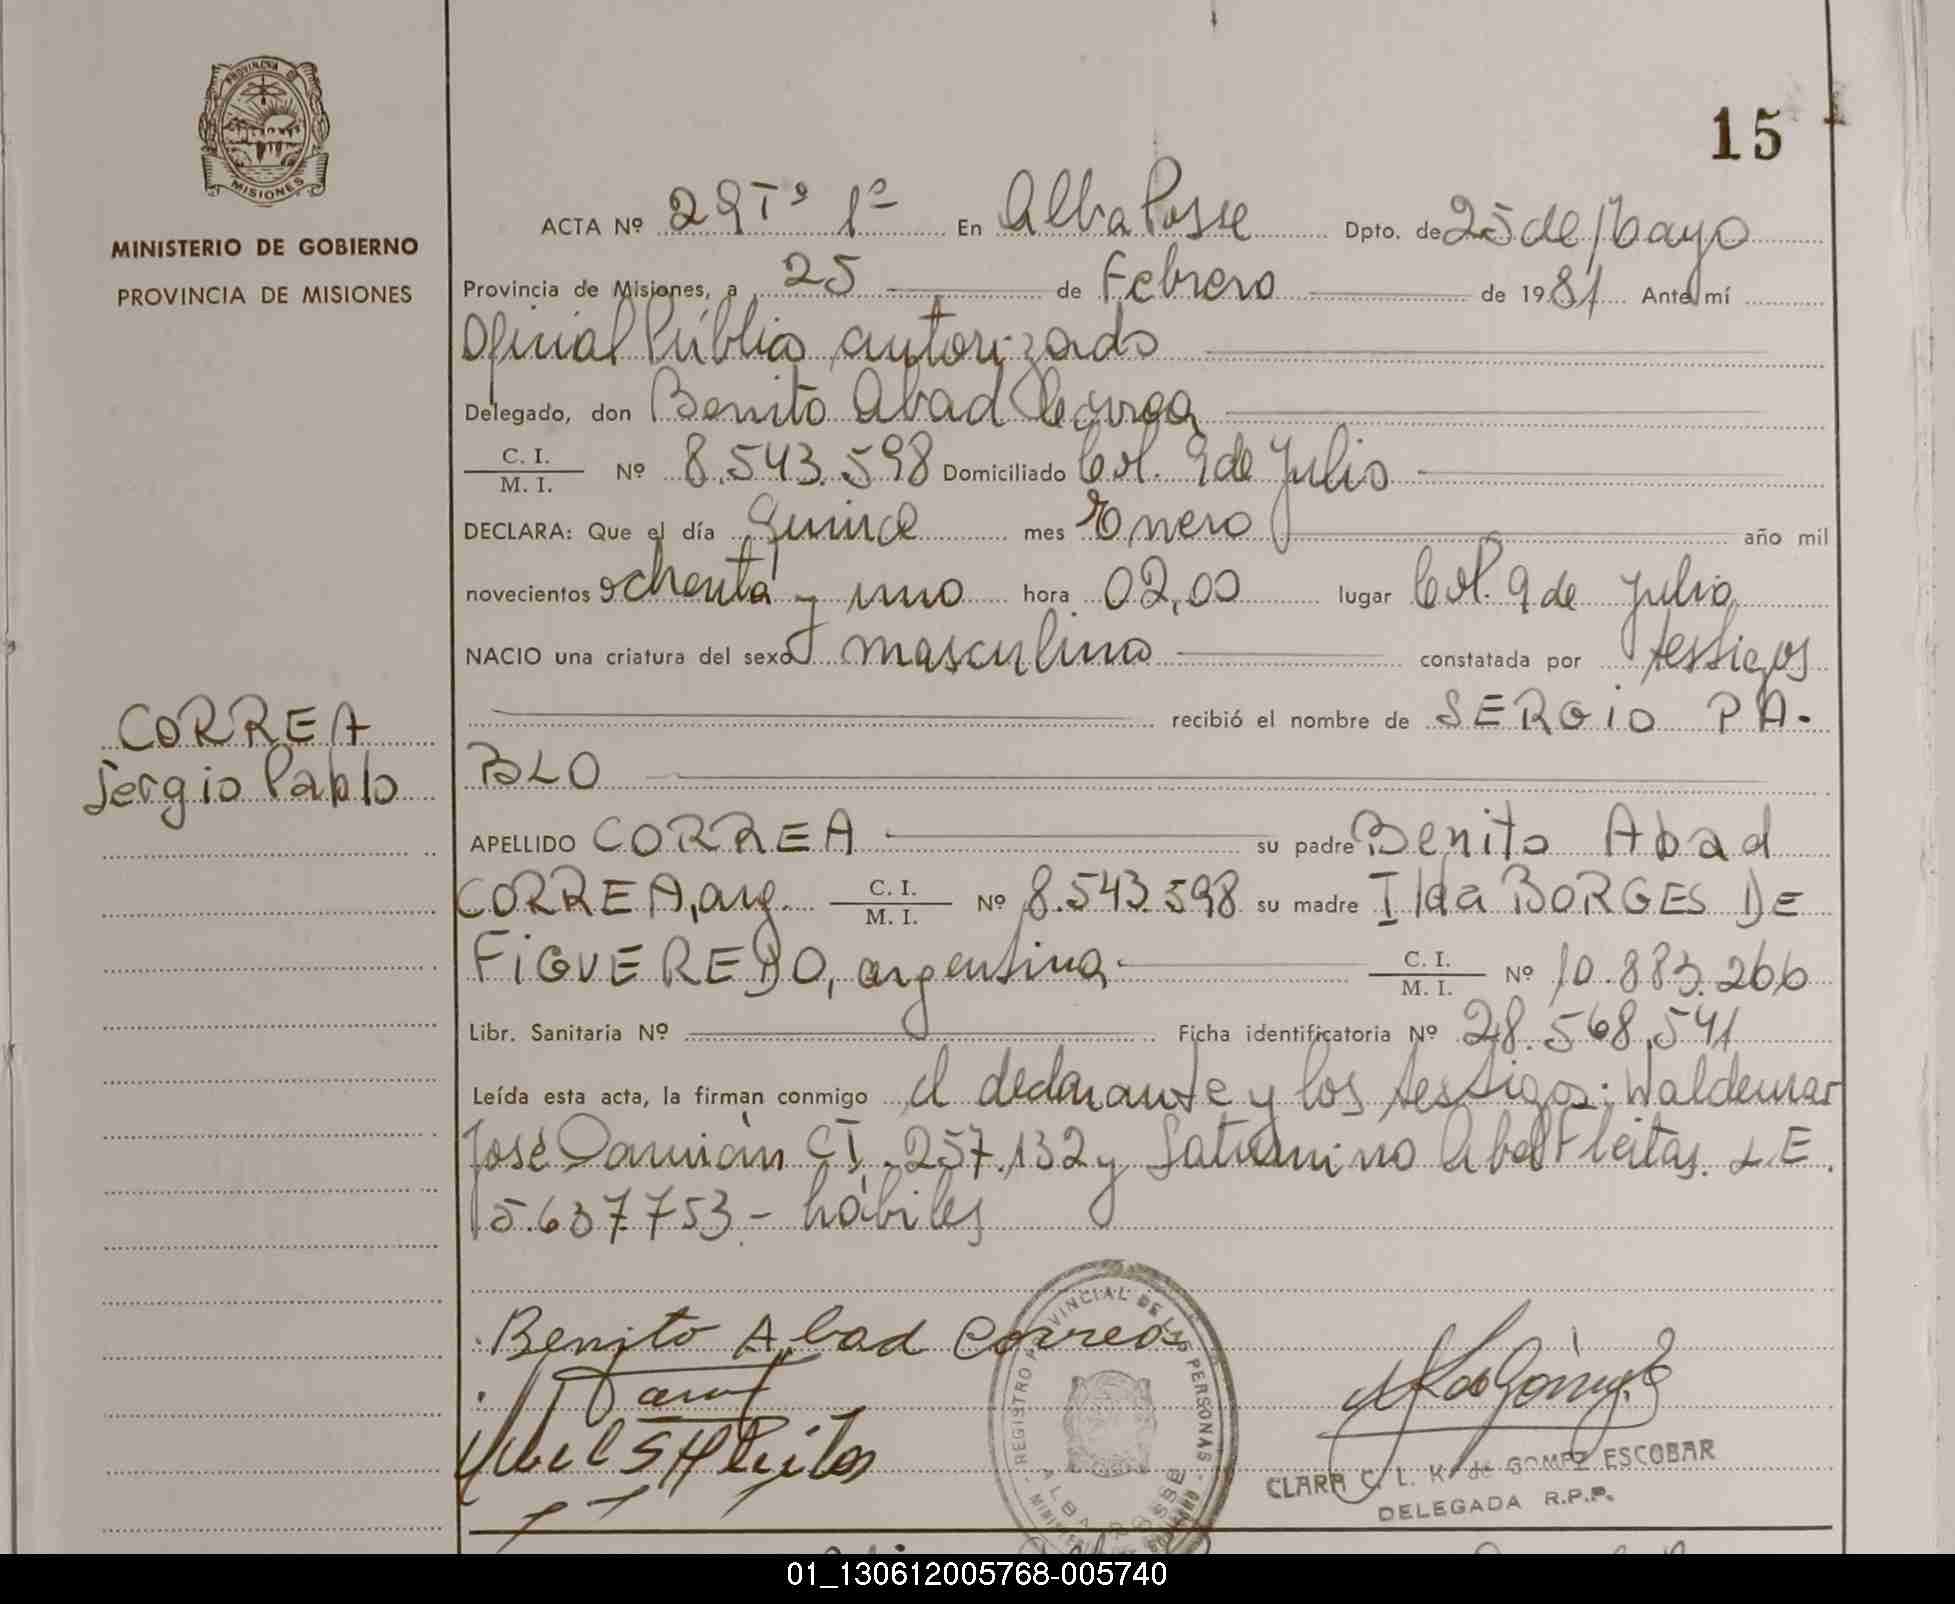 PROVINCIA DE
MISIONES
MINISTERIO DE GOBIERNO
PROVINCIA DE MISIONES
CORREA
Sergio Pablo
15
ACTA Nº 29 Tº 1º En Alba Posse Dpto. de 25 de Mayo
Provincia de Misiones, a 25 de Febrero de 1981 Ante mí
Oficial Público autorizado
Delegado, don Benito Abad Correa
C. I.
M. I. Nº 8.543.598 Domiciliado Col. 9 de Julio
DECLARA: Que el día quince mes Enero año mil
novecientos ochenta y uno hora 02,00 lugar Col. 9 de Julio
NACIO una criatura del sexo masculino constatada por testigos
recibió el nombre de SERGIO PA-
BLO
APELLIDO CORREA su padre Benito Abad
CORREA, arg. C. I.
M. I. Nº 8.543.598 su madre Ilda BORGES DE
FIGUEREDO, argentina C. I.
M. I. Nº 10.883.266
Libr. Sanitaria Nº Ficha identificatoria Nº 28.568.541
Leída esta acta, la firman conmigo el declarante y los testigos: Waldemar
José Damián CI. 257.132 y Saturnino Abel Fleitas. L.E.
5.637.753- hábiles
Benito Abad Correa
REGISTRO PROVINCIAL DE LAS PERSONAS
ALBA POSSE
CLARA C. L. K. de GOMEZ ESCOBAR
DELEGADA R.P.P.
01_130612005768-005740